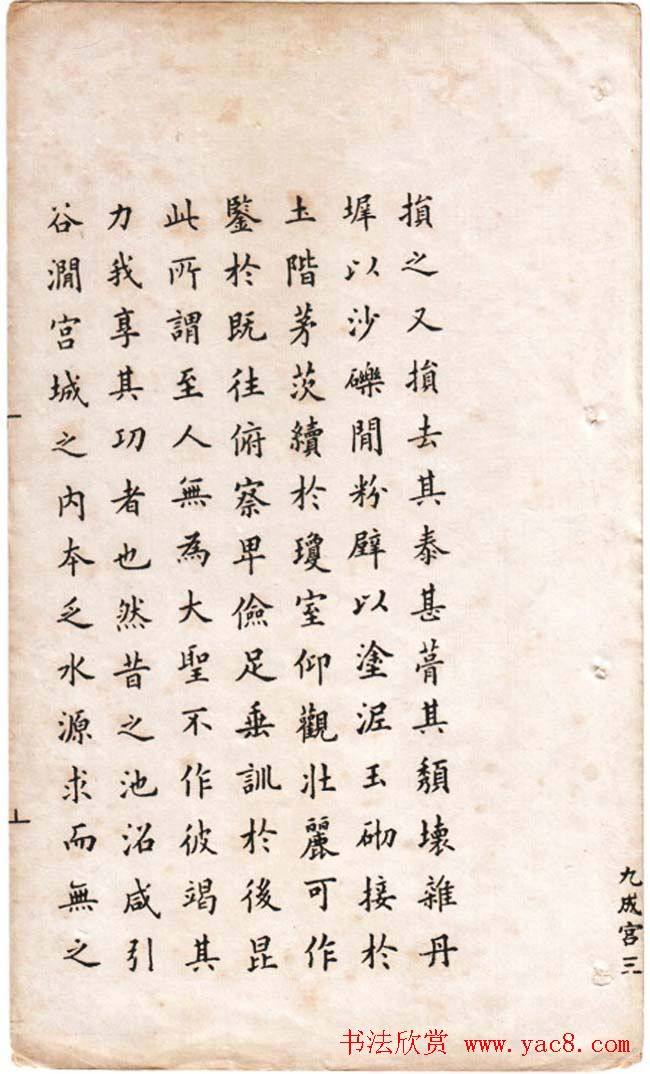 損之又損去其泰甚葺其頹壞雜丹
墀以沙礫閒粉壁以塗泥玉砌接於
土階茅茨續於瓊室仰觀壯麗可作
鑒於既往俯察卑儉足垂訓於後昆
此所謂至人無為大聖不作彼竭其
力我享其功者也然昔之池沼咸引
谷澗宮城之內本乏水源求而無之
九成宮三
书法欣赏 www.yac8.com